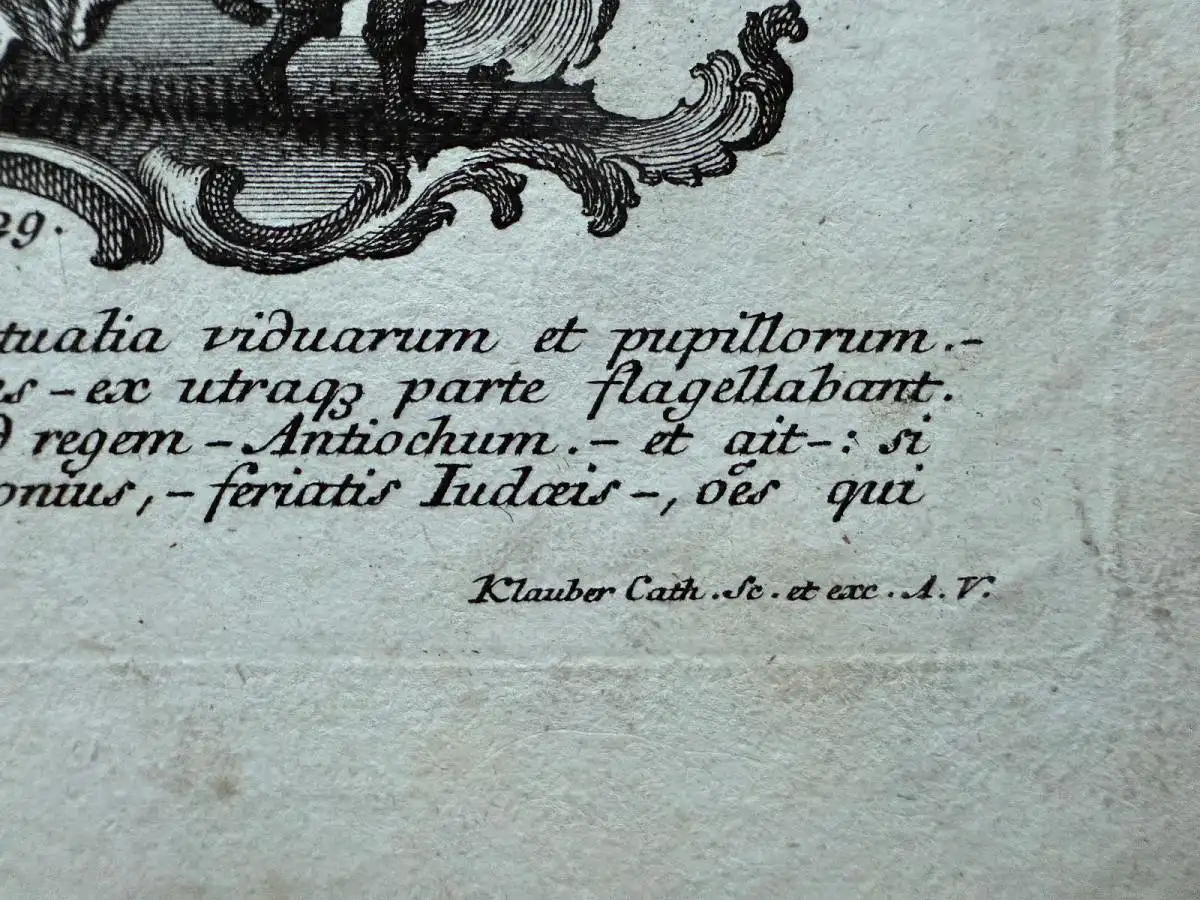 29.
tualia viduarum et pupillorum.-
es - ex utraqꝫ parte flagellabant.
d regem - Antiochum. - et ait -: si
onius, - feriatis Iudæis -, o͞es qui
Klauber Cath. Sc. et exc. A. V.